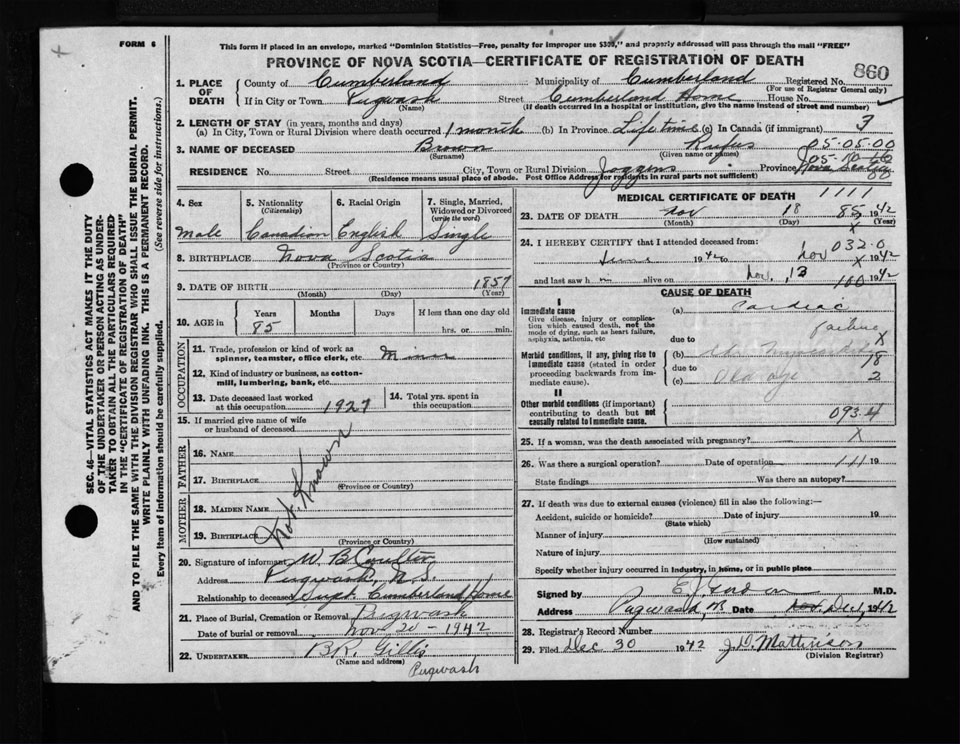 FORM 6
This form if placed in an envelope, marked "Dominion Statistics—Free, penalty for improper use $300," and properly addressed will pass through the mail "FREE"
PROVINCE OF NOVA SCOTIA—CERTIFICATE OF REGISTRATION OF DEATH
860
1. PLACE OF DEATH County of Cumberland Municipality of Cumberland Registered No.
(For use of Registrar General only)
If in City or Town Pugwash Street Cumberland Home House No.
(Name) (If death occurred in a hospital or institution, give the name instead of street and number)
2. LENGTH OF STAY (in years, months and days)
(a) In City, Town or Rural Division where death occurred 1 month (b) In Province Lifetime (c) In Canada (if immigrant) 3
3. NAME OF DECEASED Brown Rufus 05.05.00
(Surname) (Given name or names)
RESIDENCE No. Street City, Town or Rural Division Joggins Province Nova Scotia
(Residence means usual place of abode. Post Office Address for residents in rural parts not sufficient)
4. Sex Male
5. Nationality (Citizenship) Canadian
6. Racial Origin English
7. Single, Married, Widowed or Divorced (write the word) Single
8. BIRTHPLACE Nova Scotia
(Province or Country)
9. DATE OF BIRTH 1857
(Month) (Day) (Year)
10. AGE in Years Months Days If less than one day old
85 hrs. or min.
OCCUPATION
11. Trade, profession or kind of work as spinner, teamster, office clerk, etc. Miner
12. Kind of industry or business, as cotton-mill, lumbering, bank, etc.
13. Date deceased last worked at this occupation 1927
14. Total yrs. spent in this occupation
15. If married give name of wife or husband of deceased
FATHER
16. NAME
17. BIRTHPLACE
(Province or Country)
MOTHER
18. MAIDEN NAME
19. BIRTHPLACE
(Province or Country)
Not Known
20. Signature of informant W. B. Coulter
Address Pugwash, N.S.
Relationship to deceased Supt. Cumberland Home
21. Place of Burial, Cremation or Removal Pugwash
Date of burial or removal Nov 20 - 1942
22. UNDERTAKER B.R. Gillis
(Name and address)
Pugwash
MEDICAL CERTIFICATE OF DEATH 1111
23. DATE OF DEATH Nov 18 85 1942
(Month) (Day) (Year)
24. I HEREBY CERTIFY that I attended deceased from: 032.0
June 1942 to Nov 1942
and last saw h m alive on Nov. 13 100 1942
CAUSE OF DEATH
I
Immediate cause
Give disease, injury or complication which caused death, not the mode of dying, such as heart failure, asphyxia, asthenia, etc
(a) Cardiac failure
due to X
Morbid conditions, if any, giving rise to immediate cause (stated in order proceeding backwards from immediate cause).
(b) 18
due to
(c) Old age 2
II
Other morbid conditions (if important) contributing to death but not causally related to immediate cause.
093.4
25. If a woman, was the death associated with pregnancy? X
26. Was there a surgical operation? Date of operation 111 19
State findings Was there an autopsy?
27. If death was due to external causes (violence) fill in also the following:—
Accident, suicide or homicide? Date of injury 19
(State which)
Manner of injury
(How sustained)
Nature of injury
Specify whether injury occurred in industry, in home, or in public place
Signed by M.D.
Address Pugwash, NS Date Dec 1, 1942
28. Registrar's Record Number
29. Filed Dec 30 1942 J. D. Mattinson
(Division Registrar)
SEC. 46—VITAL STATISTICS ACT MAKES IT THE DUTY
OF THE UNDERTAKER OR PERSON ACTING AS UNDER-
TAKER TO OBTAIN ALL THE PARTICULARS REQUIRED
IN THE "CERTIFICATE OF REGISTRATION OF DEATH"
AND TO FILE THE SAME WITH THE DIVISION REGISTRAR WHO SHALL ISSUE THE BURIAL PERMIT.
WRITE PLAINLY WITH UNFADING INK. THIS IS A PERMANENT RECORD.
Every item of information should be carefully supplied. (See reverse side for instructions.)